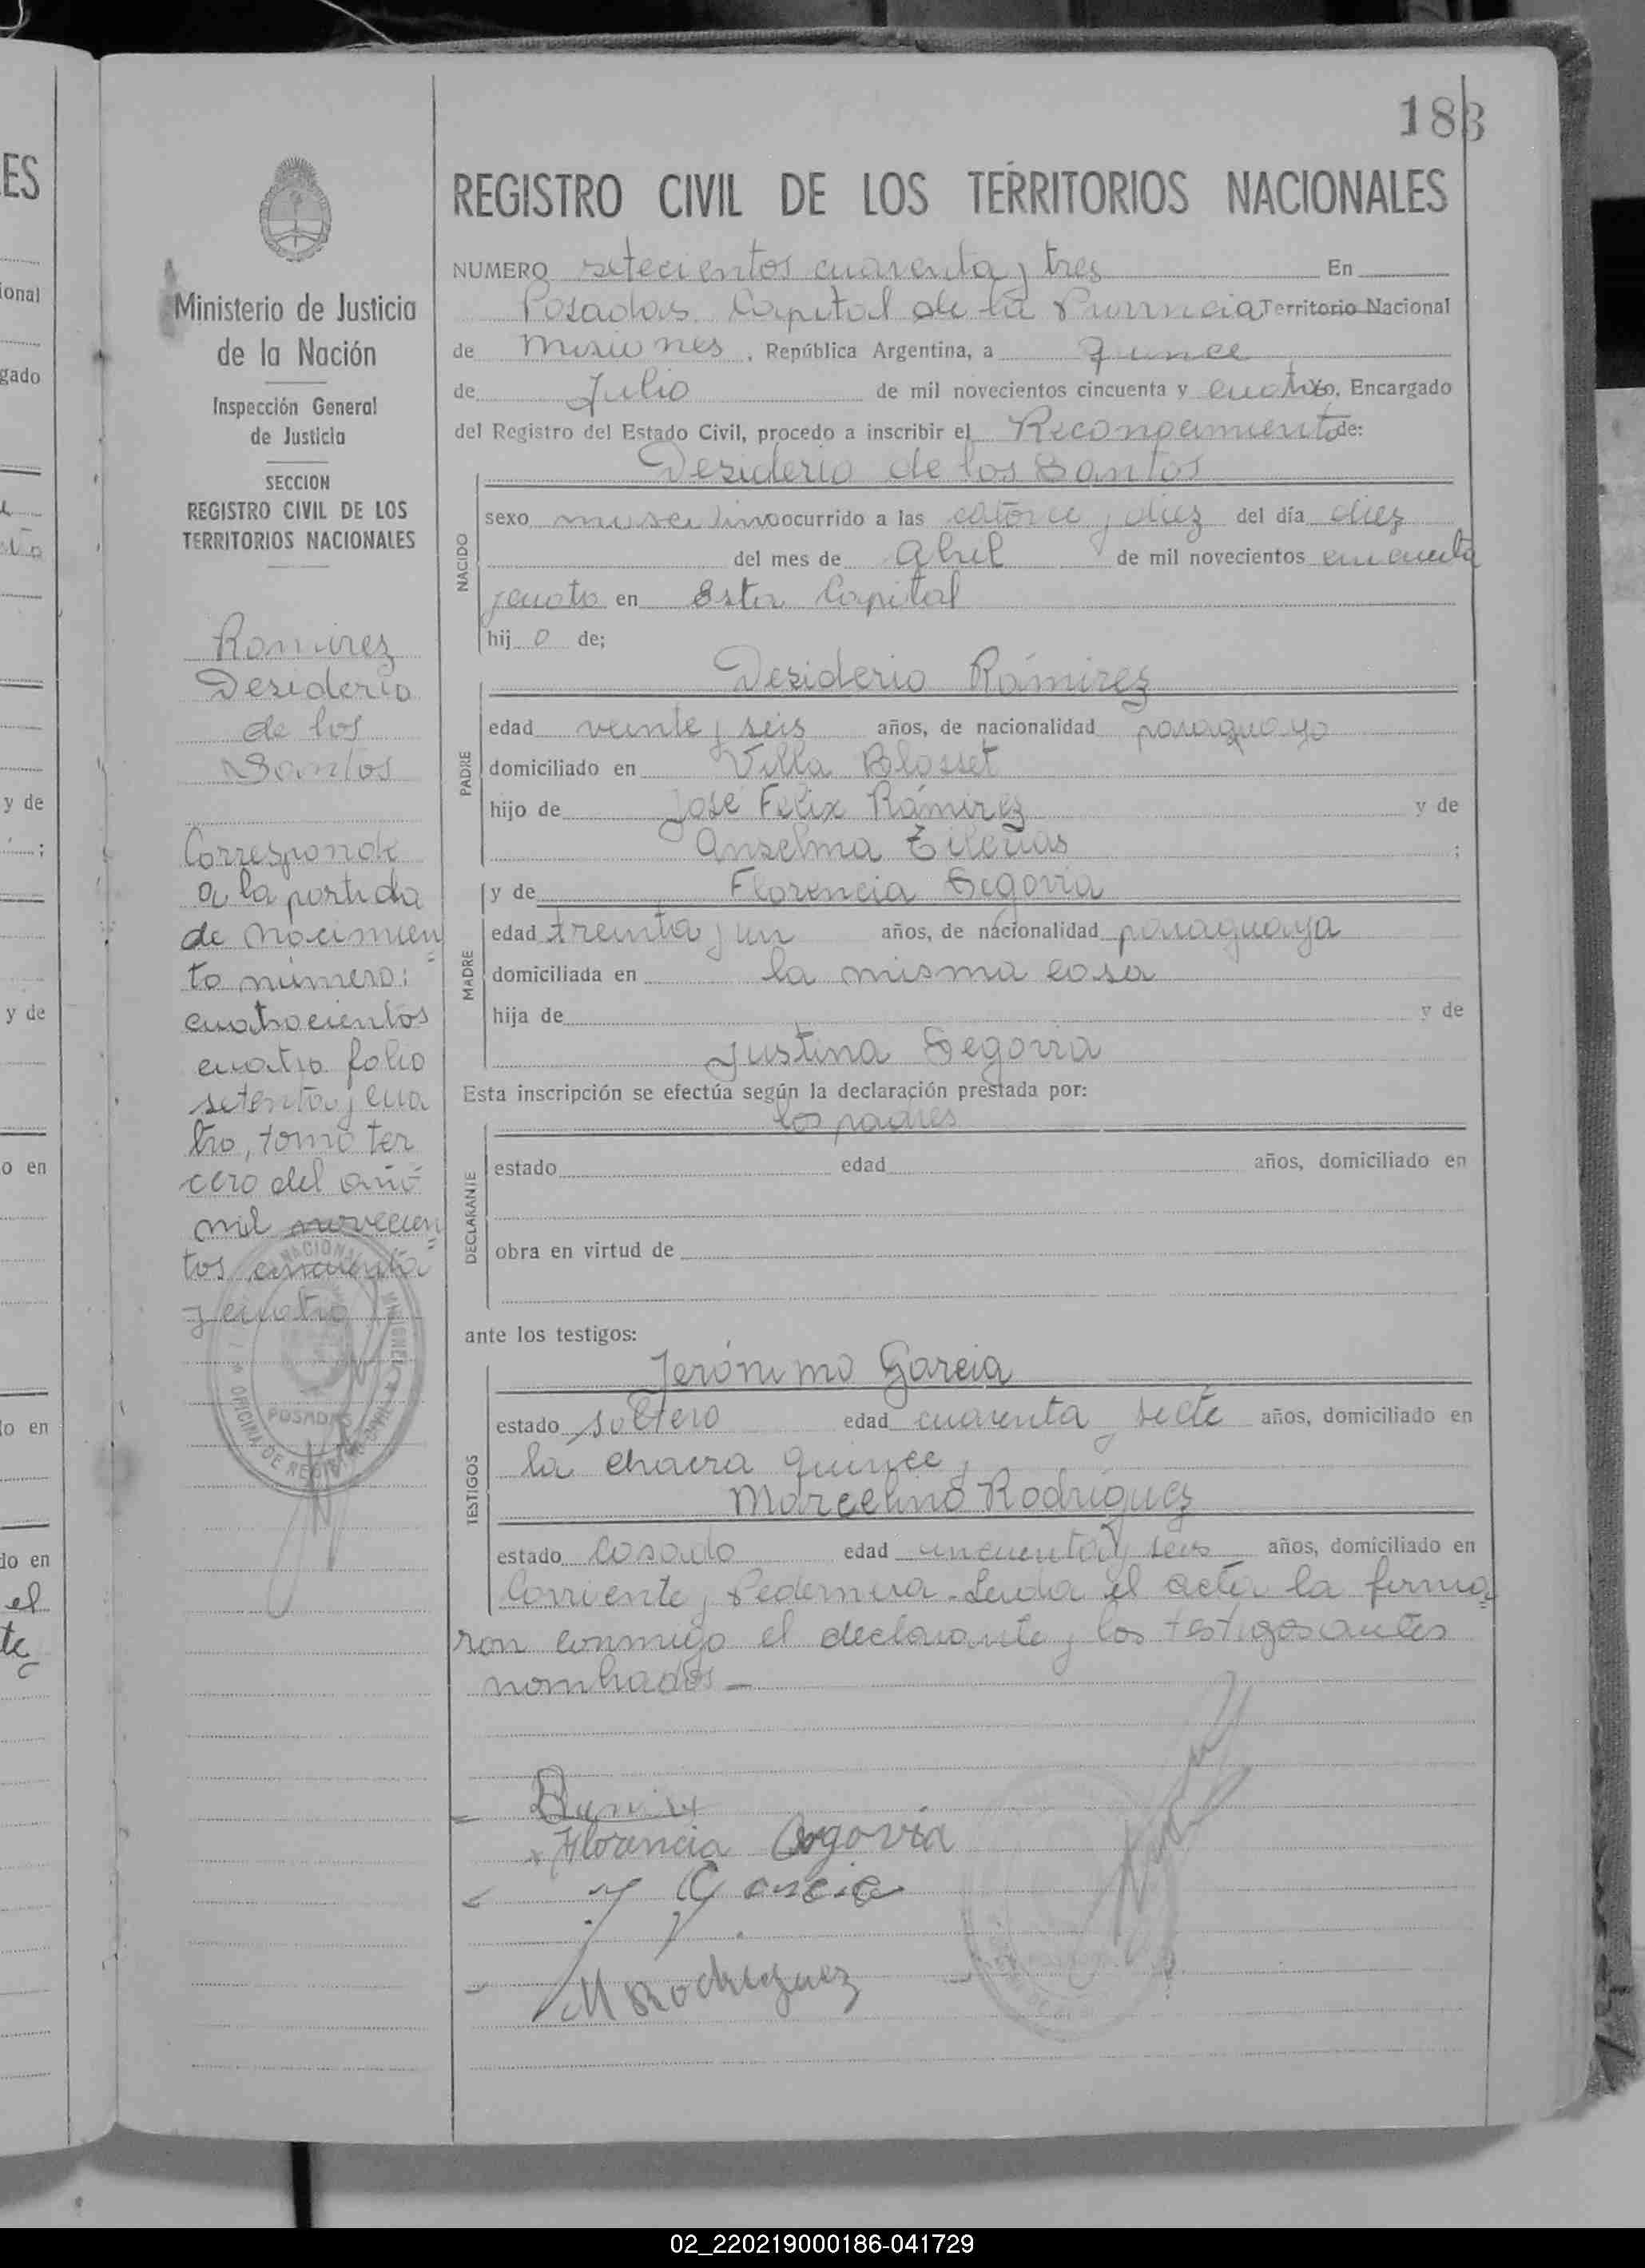 183
REGISTRO CIVIL DE LOS TERRITORIOS NACIONALES
NUMERO setecientos cuarenta y tres En
Posadas Capital de la Provincia Territorio Nacional
de Misiones, República Argentina, a Quince
de Julio de mil novecientos cincuenta y cuatro Yo, Encargado
del Registro del Estado Civil, procedo a inscribir el Reconocimiento de:
Desiderio de los Santos
NACIDO
sexo masculino ocurrido a las catorce y diez del día diez
del mes de Abril de mil novecientos cincuenta
y cuatro en Esta Capital
hijo de;
Desiderio Rámirez
PADRE
edad veinte y seis años, de nacionalidad paraguayo
domiciliado en Villa Blosset
hijo de José Felix Rámirez y de
Anselma ;
y de Florencia Segovia
MADRE
edad treinta y un años, de nacionalidad paraguaya
domiciliada en la misma casa
hija de y de
Justina Segovia
Esta inscripción se efectúa según la declaración prestada por:
los padres
DECLARANTE
estado edad años, domiciliado en
obra en virtud de
ante los testigos:
Jerónimo Garcia
TESTIGOS
estado soltero edad cuarenta y siete años, domiciliado en
la chacra quince y
Marcelino Rodriguez
estado Casado edad cincuenta y seis años, domiciliado en
Corriente y Pedernera. Leida el acta la firma=
ron conmigo el declarante y los testigos antes
nombrados—
Florencia Segovia
J Garcia
M Rodriguez
Ministerio de Justicia
de la Nación
Inspección General
de Justicia
SECCION
REGISTRO CIVIL DE LOS
TERRITORIOS NACIONALES
Ramirez
Desiderio
de los
Santos
Corresponde
a la partida
de nacimien=
to número:
cuatrocientos
cuatro folio
setenta y cua
tro, tomo ter
cero del año
mil novecien=
tos cincuenta
y cuatro
OFICINA DE REGISTRO CIVIL
POSADAS
NACIONAL
MISIONES
ES
ional
gado
y de
y de
o en
o en
do en
el
te
02_220219000186-041729